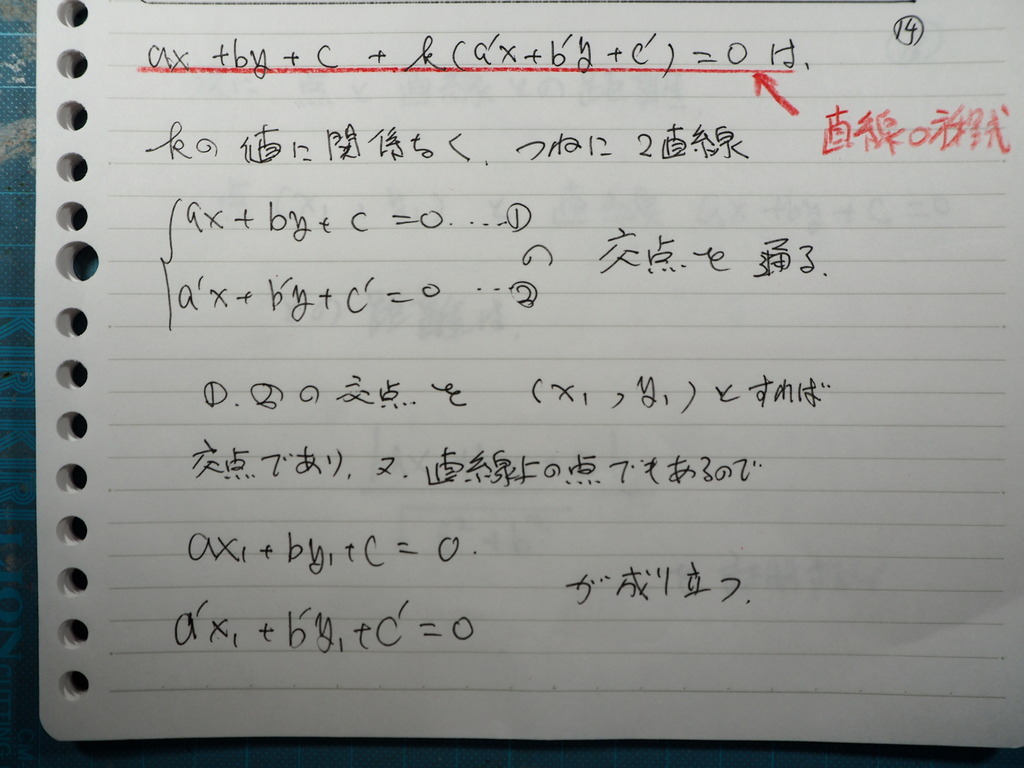 ⑭
ax + by + c + k(a'x + b'y + c') = 0 は、
直線の方程式
kの値に関係なく、つねに2直線
ax + by + c = 0 ... ①
の 交点を 通る。
a'x + b'y + c' = 0 ... ②
①、②の交点を (x₁, y₁)とすれば
交点であり、又、直線上の点でもあるので
ax₁ + by₁ + c = 0.
が成り立つ。
a'x₁ + b'y₁ + c' = 0